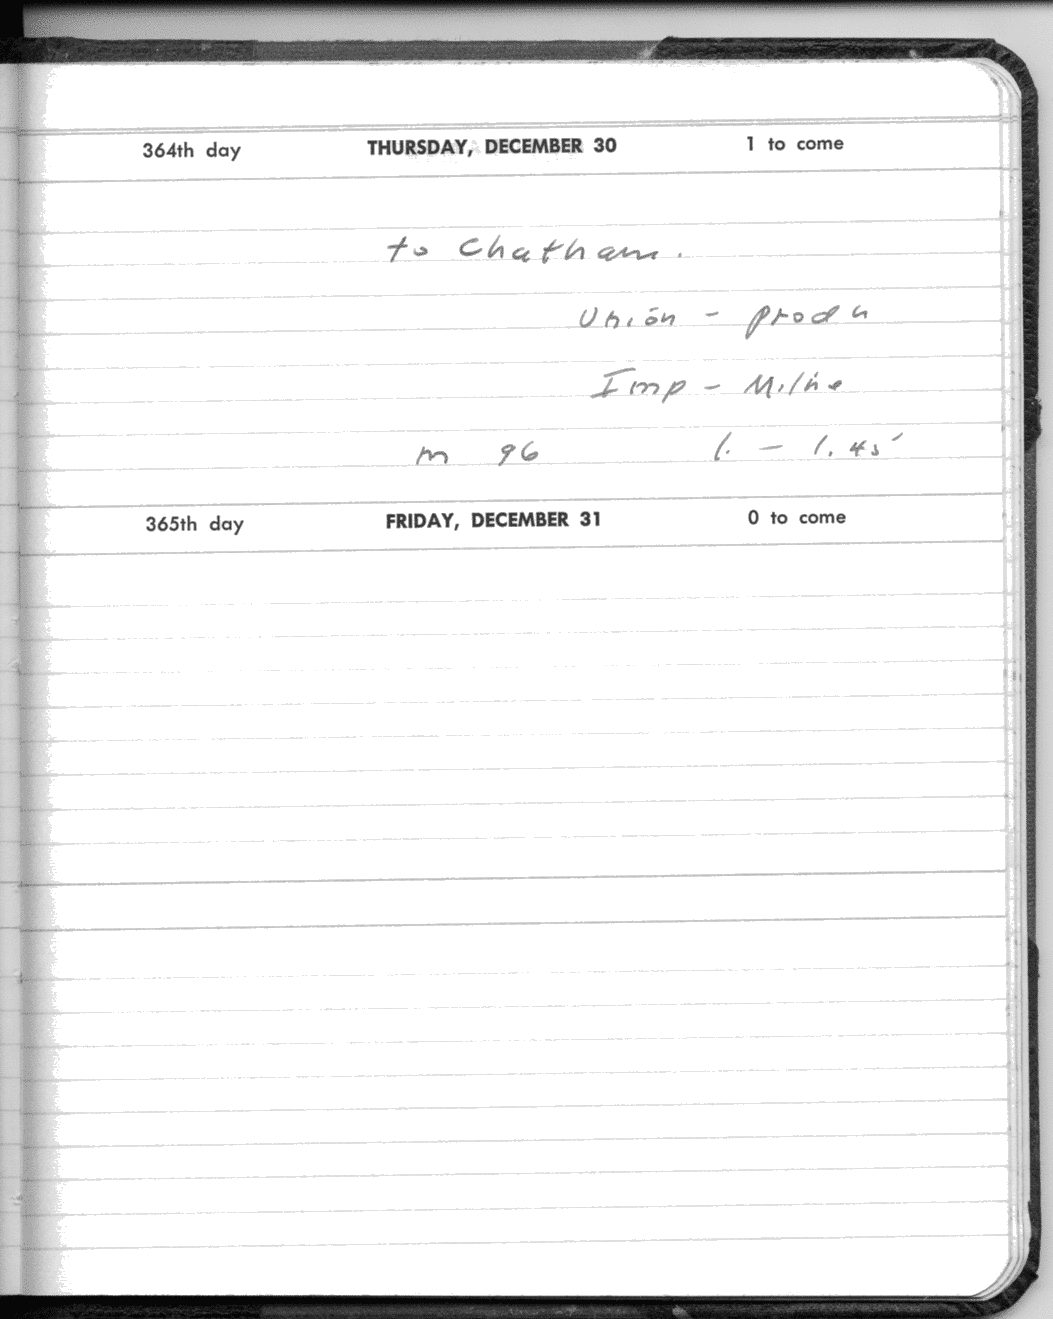 364th day THURSDAY, DECEMBER 30 1 to come
to Chatham.
Union - prodn
Imp - Milne
m 96 1. - 1.45
365th day FRIDAY, DECEMBER 31 0 to come